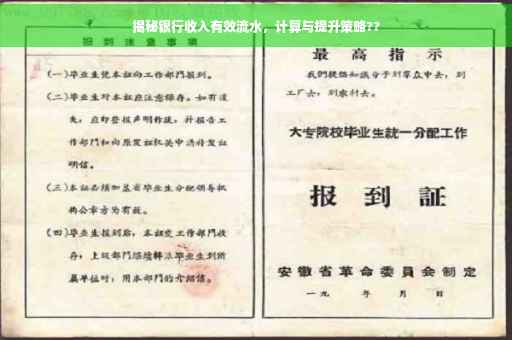 揭秘银行收入有效流水，计算与提升策略??
报到注意事项
(一)毕业生凭本证向工作部门报到。
(二)毕业生对本证应注意保存。如有遗
失，应即登报声明作废，并报告工
作部门和向原发证机关申请补发证
明信。
(三)本证必须加盖省毕业生分配领导机
构公章方为有效。
(四)毕业生报到后，本证交工作部门收
存；上级部门继续转派毕业生到所
属单位时，用本部门的介绍信。
最高指示
我们提倡知识分子到群众中去，到
工厂去，到农村去。
大专院校毕业生统一分配工作
报到証
安徽省革命委員会制定
一九 年 月 日